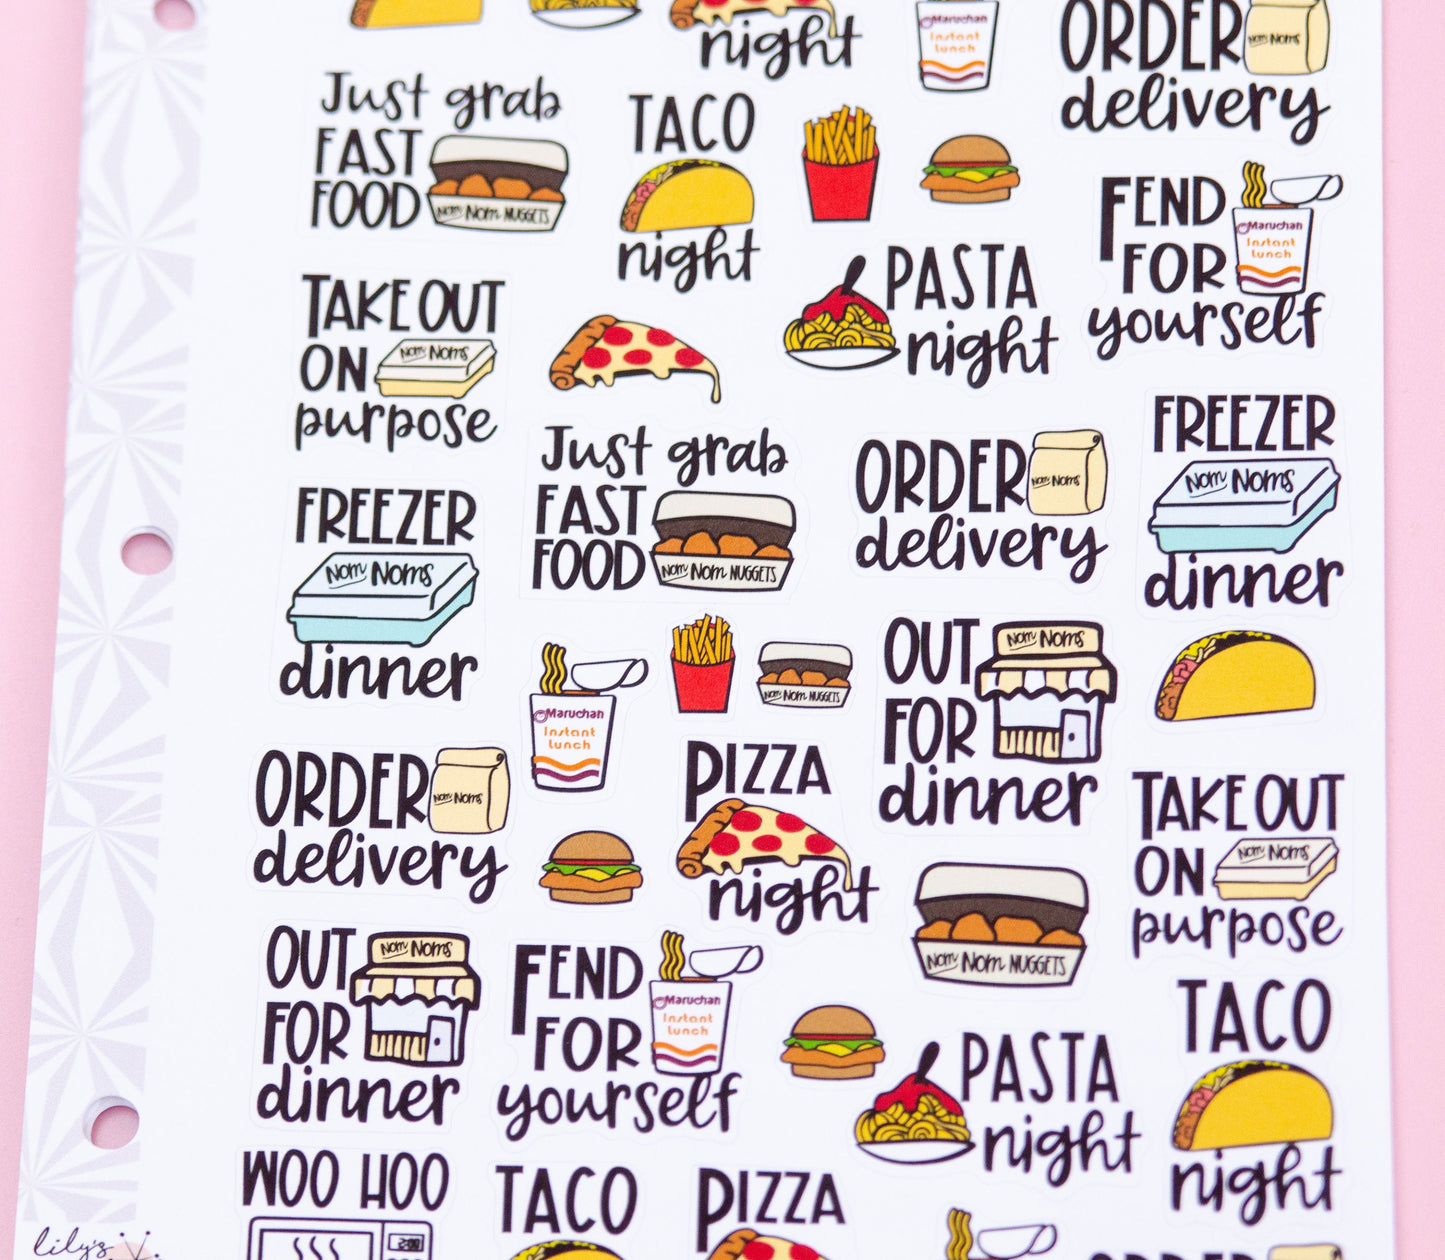 night
Maruchan
Instant
lunch
ORDER
Nom Noms
delivery
Just grab
FAST
FOOD
Nom Nom NUGGETS
TACO
night
FEND
FOR
yourself
Maruchan
Instant
lunch
TAKE OUT
ON
Nom Noms
purpose
PASTA
night
FREEZER
Nom Noms
dinner
Just grab
FAST
FOOD
Nom Nom NUGGETS
ORDER
Nom Noms
delivery
FREEZER
Nom Noms
dinner
Maruchan
Instant
lunch
Nom Nom NUGGETS
OUT
Nom Noms
FOR
dinner
ORDER
Nom Noms
delivery
PIZZA
night
TAKE OUT
ON
Nom Noms
purpose
Nom Nom NUGGETS
OUT
Nom Noms
FOR
dinner
FEND
FOR
yourself
Maruchan
Instant
lunch
PASTA
night
TACO
night
WOO HOO
TACO
PIZZA
ORDER
lily's